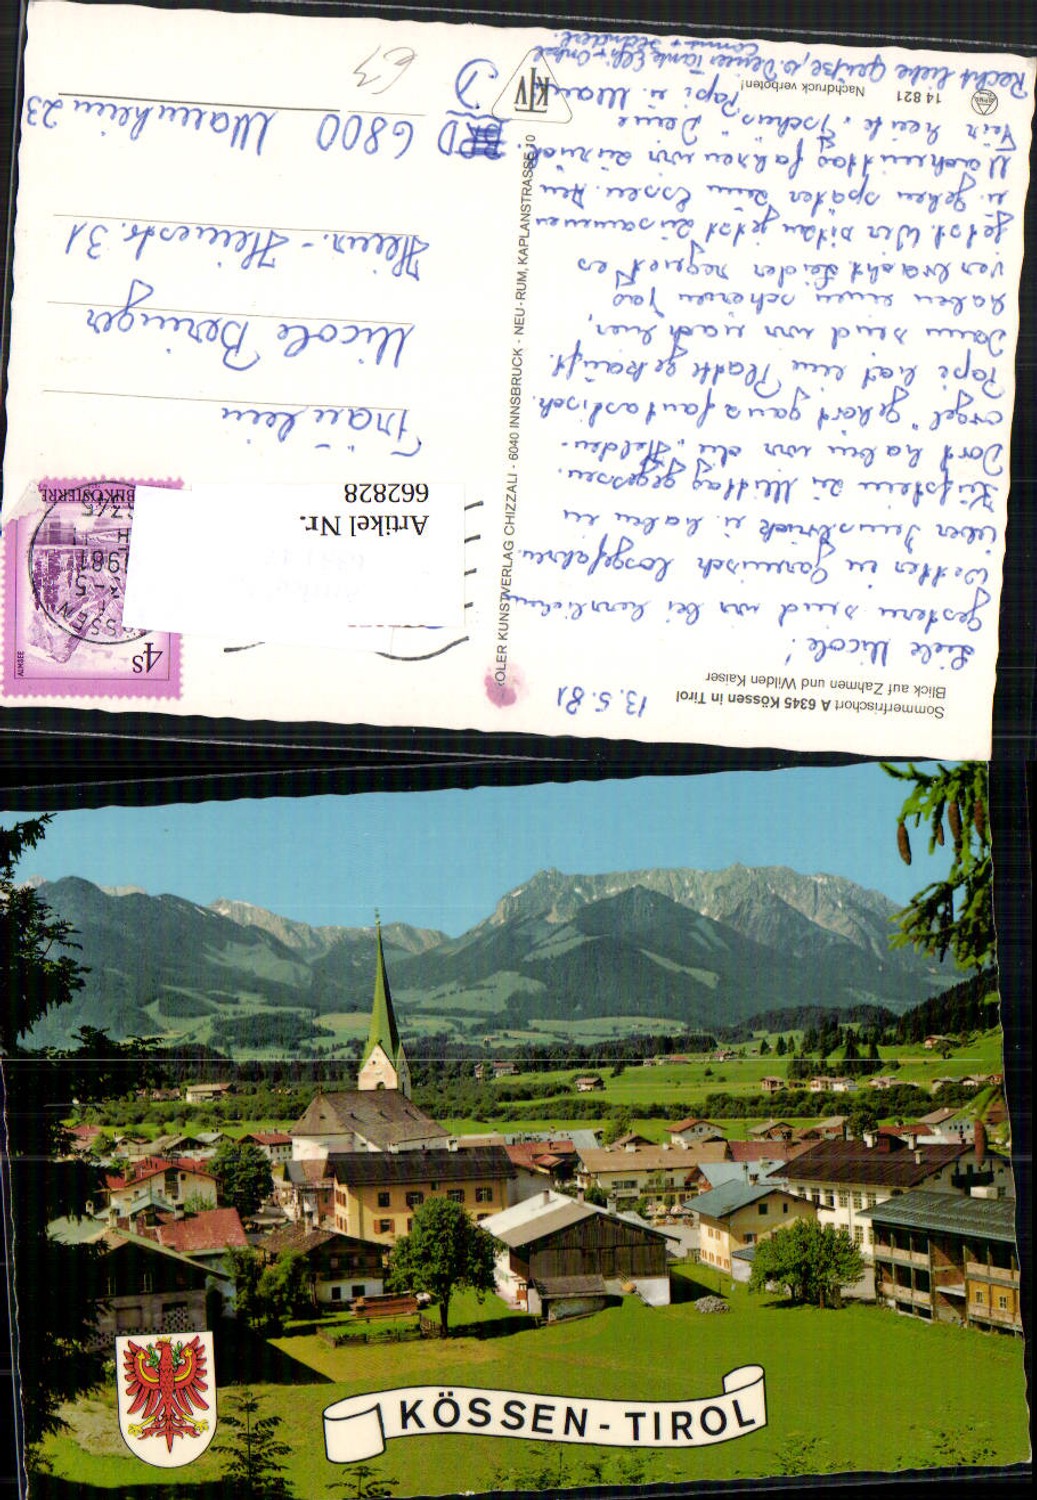 Sommerfrischort A 6345 Kössen in Tirol
Blick auf Zahmen und Wilden Kaiser
13.5.81
Liebe Nicole!
gestern sind wir bei herrlichem
Wetter in Garmisch losgefahren
über Innsbruck u. haben in
Kufstein zu Mittag gegessen.
Dort haben wir die "Helden-
orgel" gehört ganz fantastisch.
Papi hat eine Platte gekauft.
Dann sind wir nach hier,
haben einen schönen Tag
verbracht. Leider regnet es
jetzt. Wir sitzen jetzt zusammen
u. gehen später zum Essen. Am
Nachmittag fahren wir zurück.
Für heute "Tschüs" Deine
Papi u. Mami
Recht liebe Grüsse, v. Deiner Tante Elli + Onkel
14 821
Nachdruck verboten!
KTV
TIROLER KUNSTVERLAG CHIZZALI · 6040 INNSBRUCK - NEU-RUM, KAPLANSTRASSE 10
4S
ALMSEE
REPUBLIK ÖSTERREICH
KÖSSEN
1981
6345
Artikel Nr.
662828
Fräulein
Nicole Beringer
Heinr.-Heinestr. 31
D 6800 Mannheim 23
D
KÖSSEN - TIROL